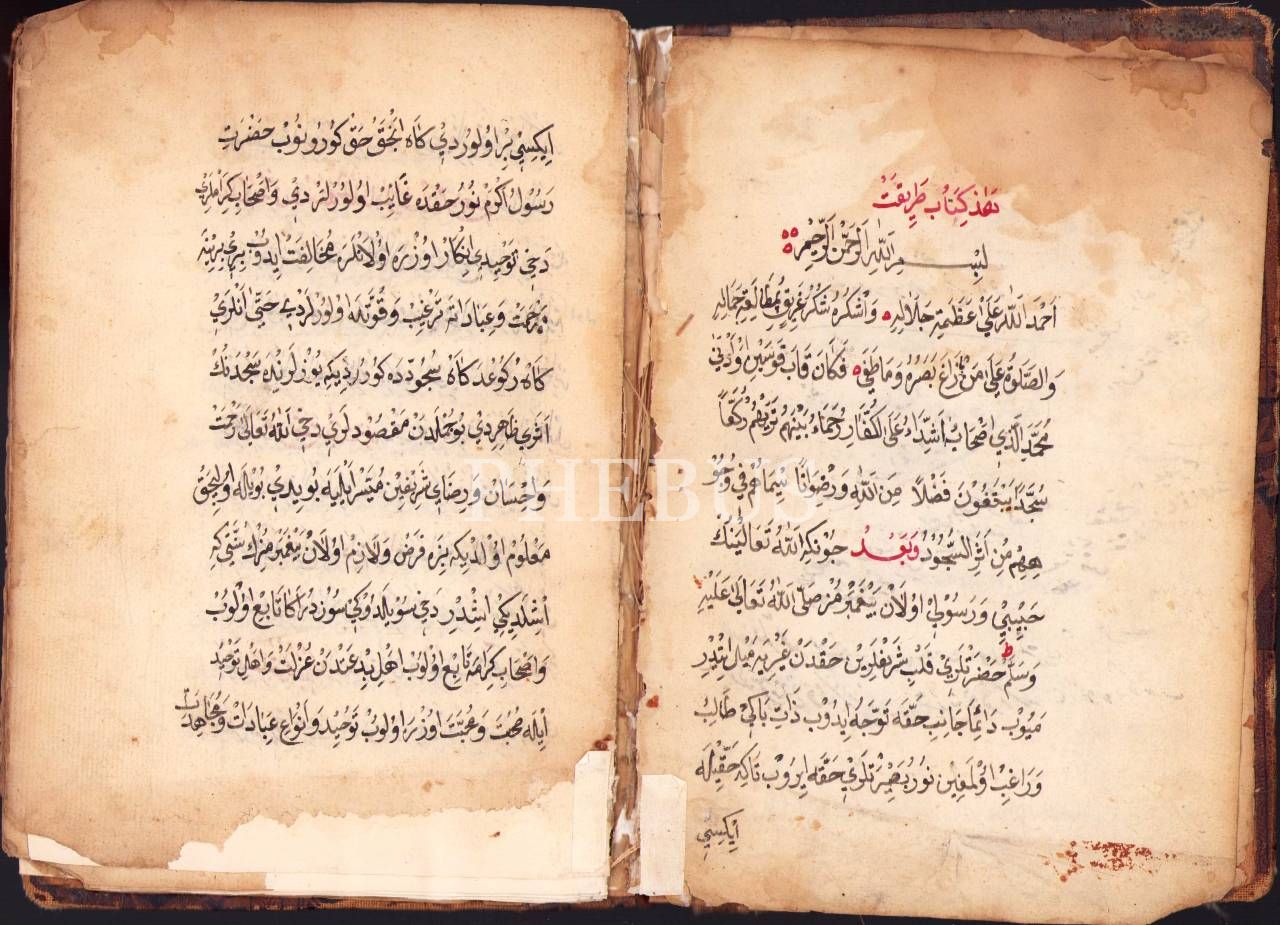 هذا كتاب طريقت
بسم الله الرحمن الرحيم
احمد الله على عظمة جلاله واشكره شكر غريق بمطالعة جماله
والصلوة على من ما زاغ بصره وما طغى فكان قاب قوسين او ادنى
محمد الذي اصحابه اشداء على الكفار رحماء بينهم تريهم ركعا
سجدا يبتغون فضلا من الله ورضوانا سيماهم في وجو
ههم من اثر السجود وبعد چونكه الله تعالينك
حبيبي ورسولي اولان پيغمبرمز صلى الله تعالى عليه
وسلم حضرتلري قلب شريفلرين حقدن غيريه ميل ايتدر
ميوب دائما جانب حقه توجه ايدوب ذات پاكي طالب
وراغب اولمغين نور بصيرتلري حقه ايروب تاكه حقيله
ايكيسي
ايكيسي بر اولوردي كاه انجق حق كورونوب حضرت
رسول اكرم نور حقده غائب اولورلردي واصحاب كراملري
دخي توحيدي انكار اوزره اولانلره مخالفت ايدوب بري برينه
مرحمت وعباداته ترغيب وقوتله اولورلردي حتى انلري
كاه ركوعده كاه سجودده كوررديكه يوزلرنده سجده نك
اثري ظاهردي بو جمله دن مقصودلري دخي الله تعالى رحمت
واحسان ورضاي شريفين ميسر ايليه بو يدي بويله اوليجق
معلوم اولديكه بزه فرض ولازم اولان پيغمبرمزك شول كه
اشلديكي ايشدر دخي سويلدوكي سوزدر اكا تابع اولوب
واصحاب كرامه تابع اولوب اهل بدعتدن عزلت واهل توحيد
ايله صحبت ومحبت اوزره اولوب توحيد وانواع عبادات ومجاهدات
PHEBUS